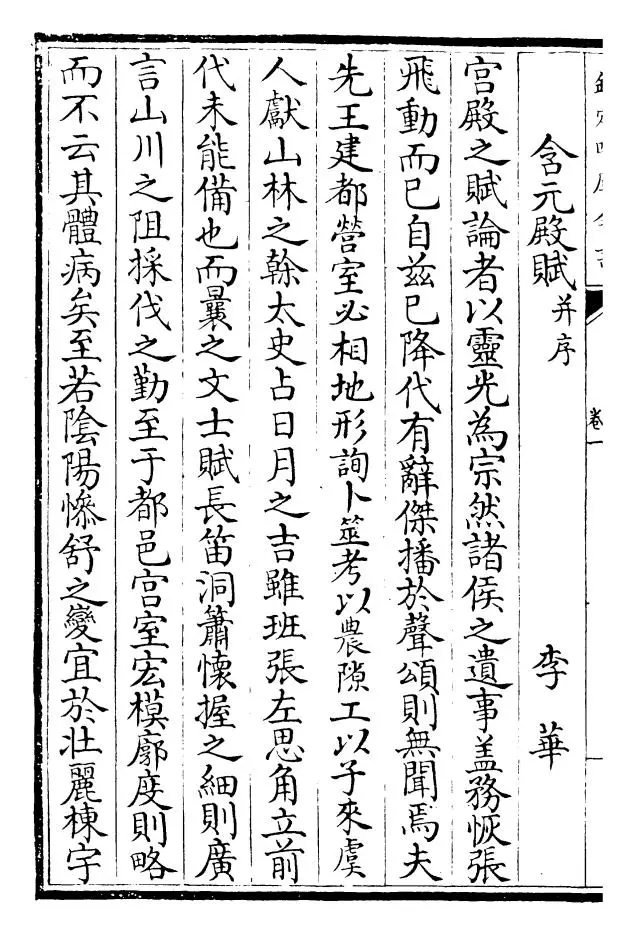 欽定四庫全書
卷一
含元殿賦并序 李華
宫殿之賦論者以靈光為宗然諸侯之遺事盖務恢張
飛動而已自兹已降代有辭傑播於聲頌則無聞焉夫
先王建都營室必相地形詢卜筮考以農隙工以子來虞
人獻山林之榦太史占日月之吉雖班張左思角立前
代未能備也而曩之文士賦長笛洞簫懷握之細則廣
言山川之阻採伐之勤至于都邑宫室宏模廓度則略
而不云其體病矣至若隂陽慘舒之變宜於壮麗棟宇